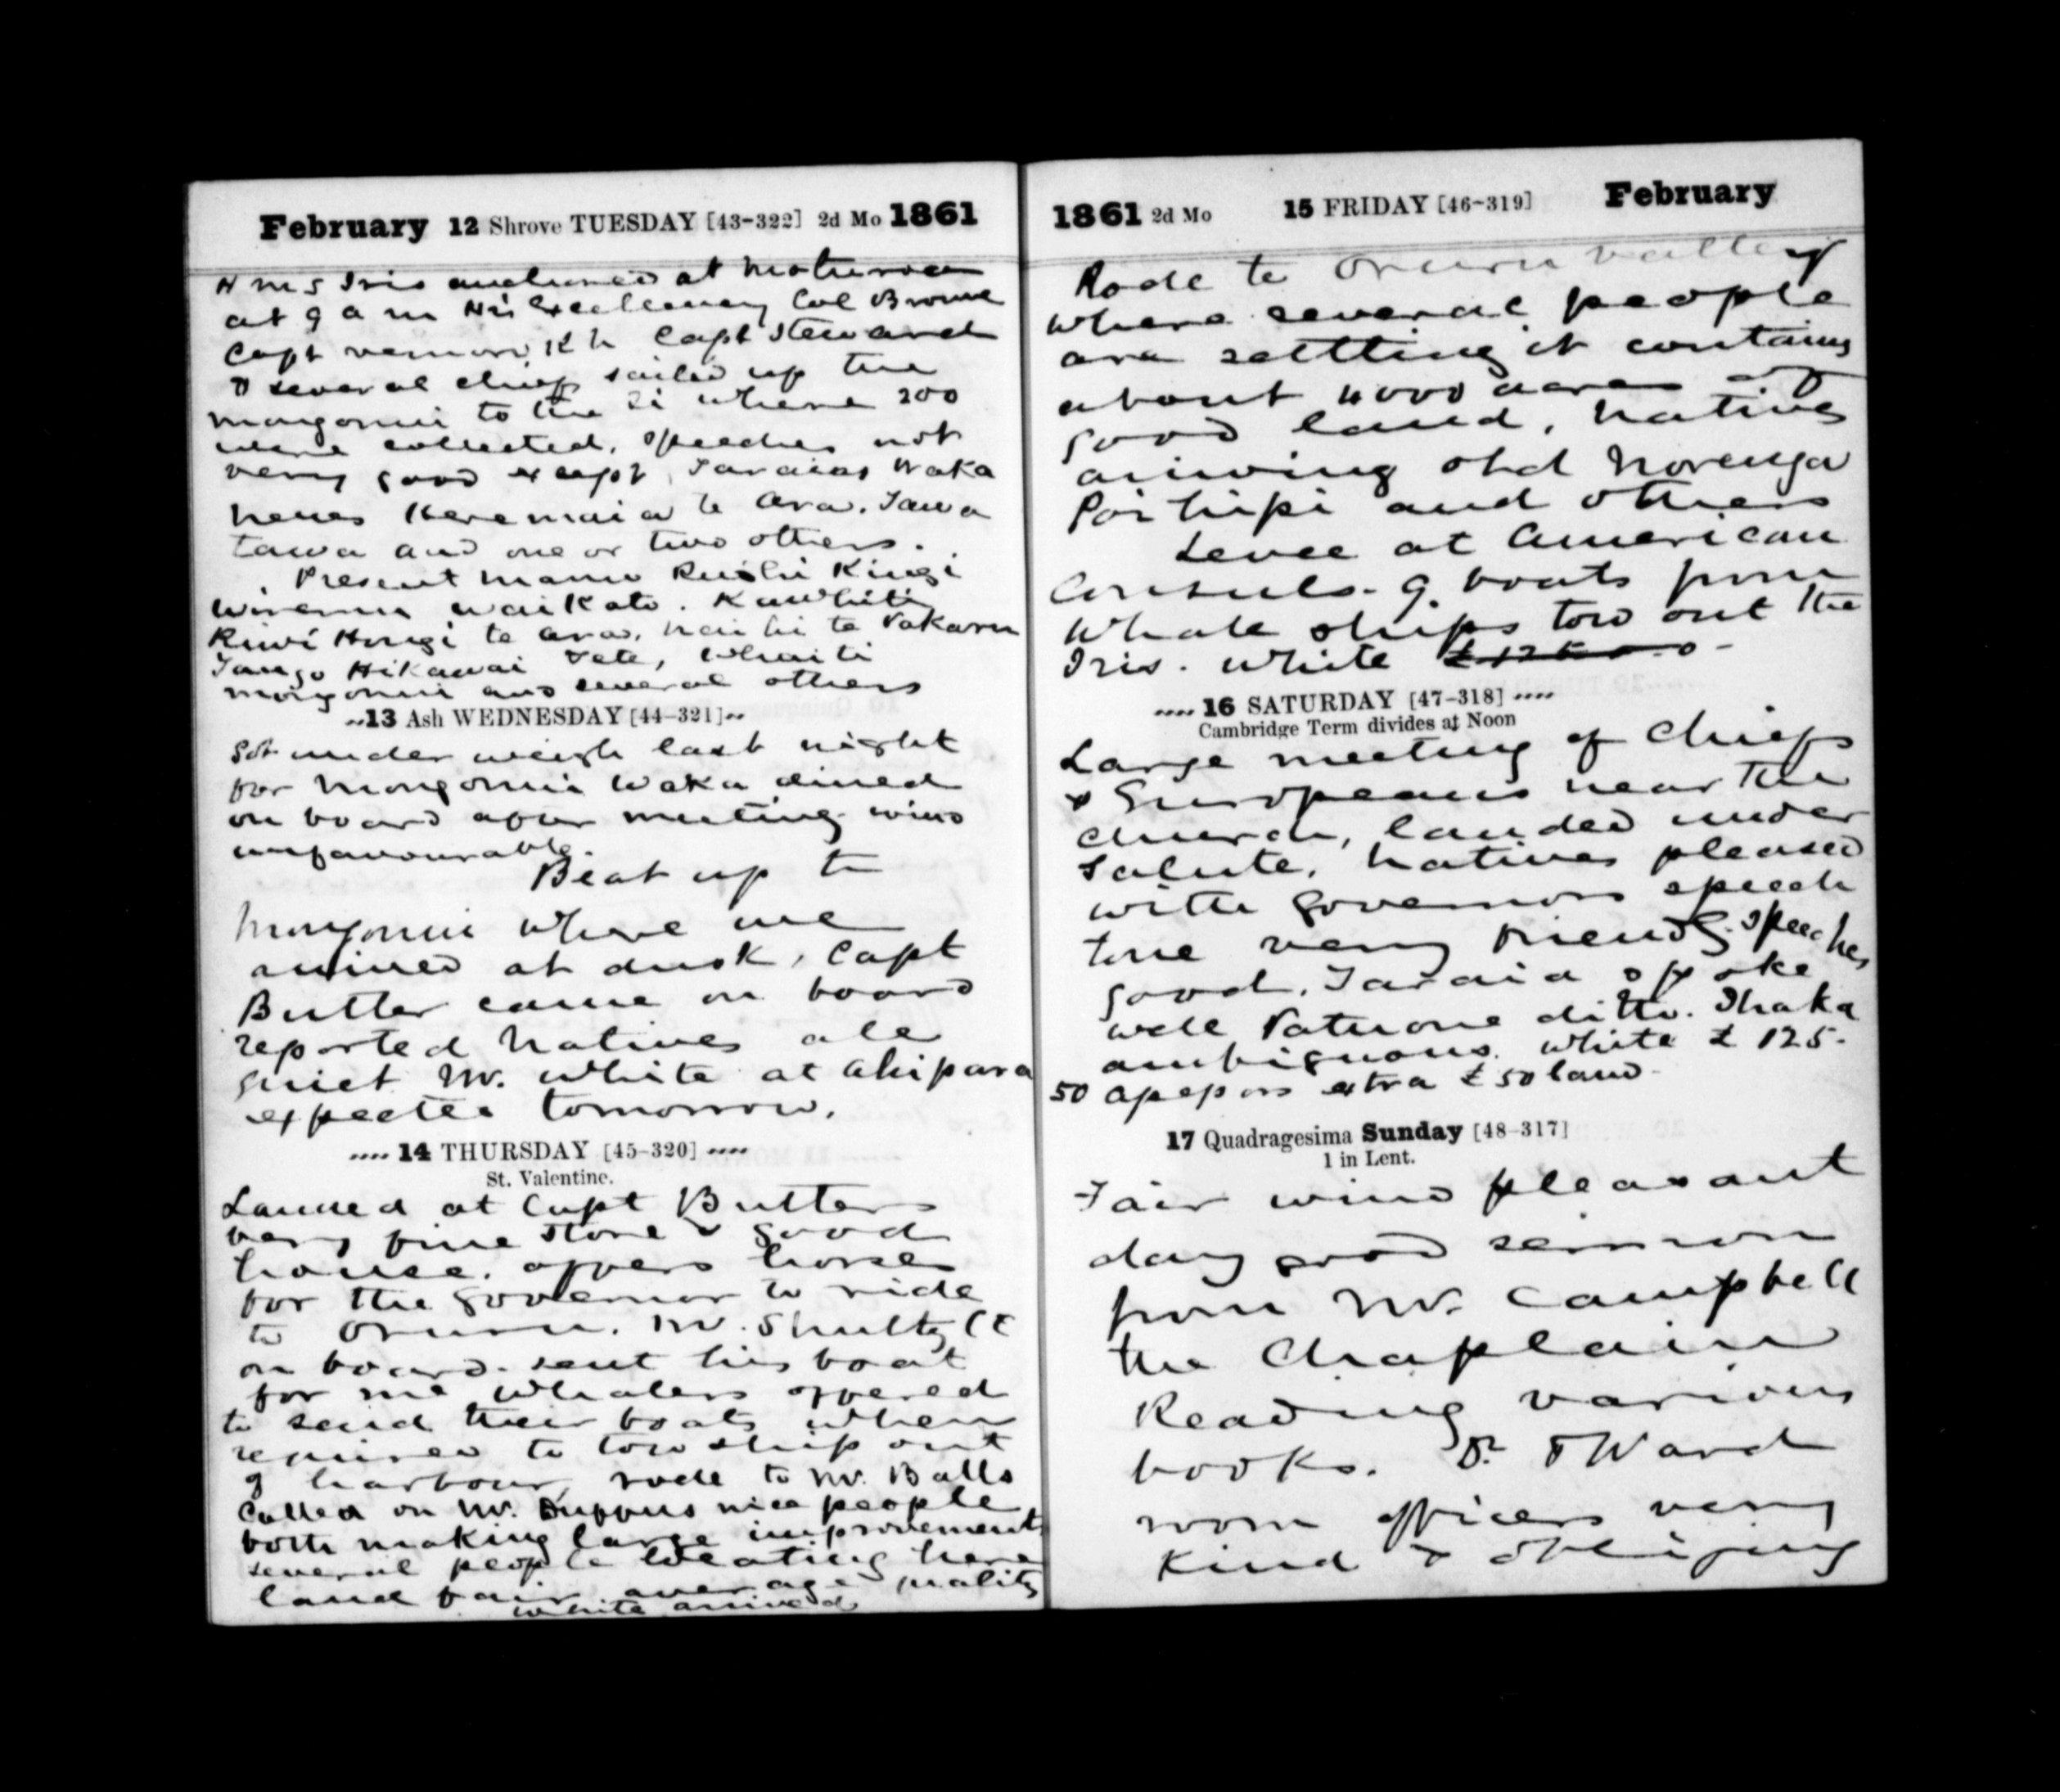 February 12 Shrove TUESDAY [43-322] 2d Mo 1861
H M S Iris anchored at Moturoa
at 9 a m His Excellency Col Browne
Capt Steward
& several chiefs sailed up the
Mangonui to the where 200
were collected. Speeches not
very good except Taraias Waka
Nenes Heremaia te Ara. Tawa
tawa and one or two others.
Present Manu Kingi
Wiremu Waikato. Kawhiti
Kiwi Hongi te Ara. te Pakaru
Tango Hikawai Tete, Whaiti
Mangonui and several others
13 Ash WEDNESDAY [44-321]
Got under weigh last night
for Mongonui Waka dined
on board after meeting. wind
unfavourable.
Beat up to
Mongonui where we
arrived at dusk, Capt
Butler came on board
reported Natives all
quiet Mr. White at Ahipara
expected tomorrow.
14 THURSDAY [45-320]
St. Valentine.
Landed at Capt Butlers
very fine store & good
house. offers horses
for the Governor to ride
to Oruru. Mr. Shultz
on board. sent his boat
for me Whalers offered
to send their boats when
required to tow ship out
of harbour, rode to Mr. Balls
Called on Mr. Duffus nice people
both making large improvements
several people locating here
land fair average quality
White arrived
1861 2d Mo 15 FRIDAY [46-319] February
Rode to Oruru valley
where several people
are settling it contains
about 4000 acres of
good land, Natives
arriving old Norenga
Poihipi and others
Levee at American
Consuls. 9 boats from
Whale ships tow out the
Iris. White £125-0-0-
16 SATURDAY [47-318]
Cambridge Term divides at Noon
Large meeting of Chiefs
& Europeans near the
church, landed under
salute, Natives pleased
with Governors speech
tone very friendly. speeches
good. Taraia spoke
well Patuone ditto. Ihaka
ambiguous. White £125-
50 extra £50 land-
17 Quadragesima Sunday [48-317]
1 in Lent.
Fair wind pleasant
day good sermon
from Mr. Campbell
the Chaplain
Reading various
books. Dr. & Ward
room officers very
kind & obliging